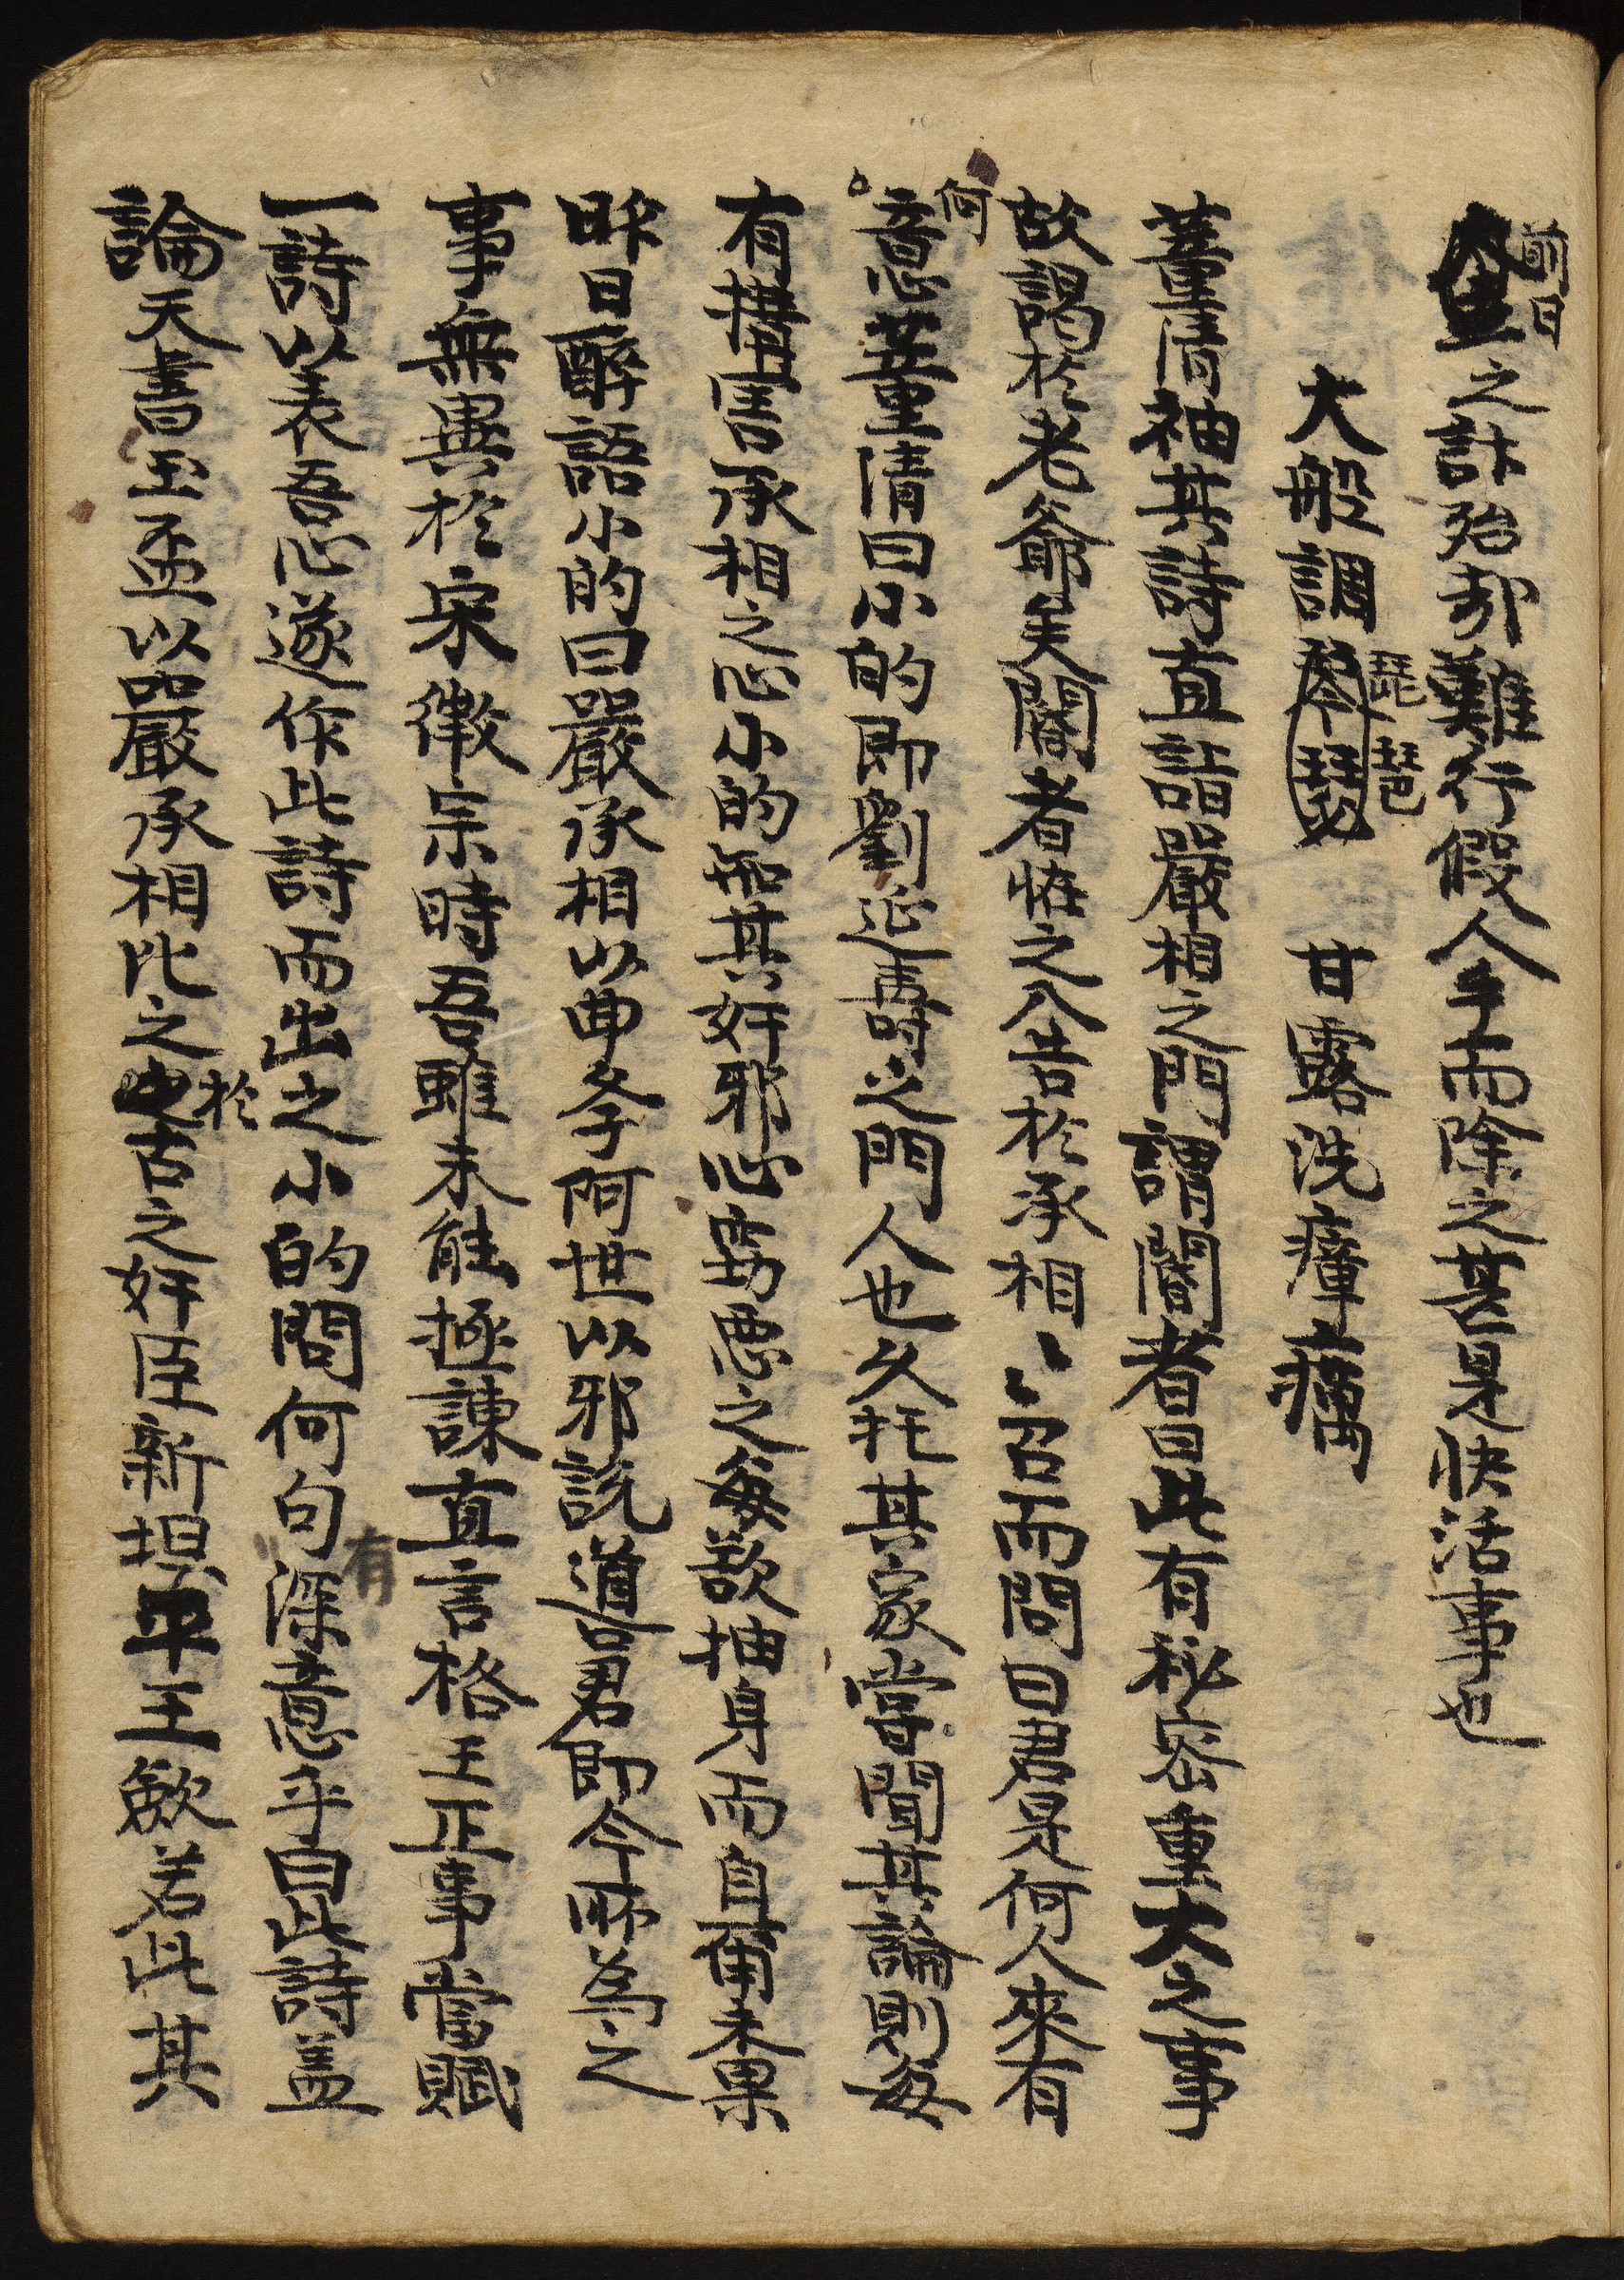 前日之計殆却難行假人手而除之甚是快活事也
大般調琵琶 甘露洗瘴癘
董淸袖其詩直詣嚴相之門謂閽者曰此有秘密重大之事
故謁於老爺矣閽者恠之入告於承相〻召而問曰君是何人來有
何意董清曰小的即劉延壽之門人也久托其家嘗聞其論則每
有搆害承相之心小的知其奸邪心獨惡之每欲抽身而自顧未果
昨日醉語小的曰嚴承相以曲李阿世以邪說道君即今所爲之
事無異於宋徽宗時吾雖未能極諫直言格王正事當賦
一詩以表吾心遂作此詩而出之小的問何句有深意乎曰此詩盖
論天書玉盃以嚴承相比之於古之奸臣新垣平王欽若此其